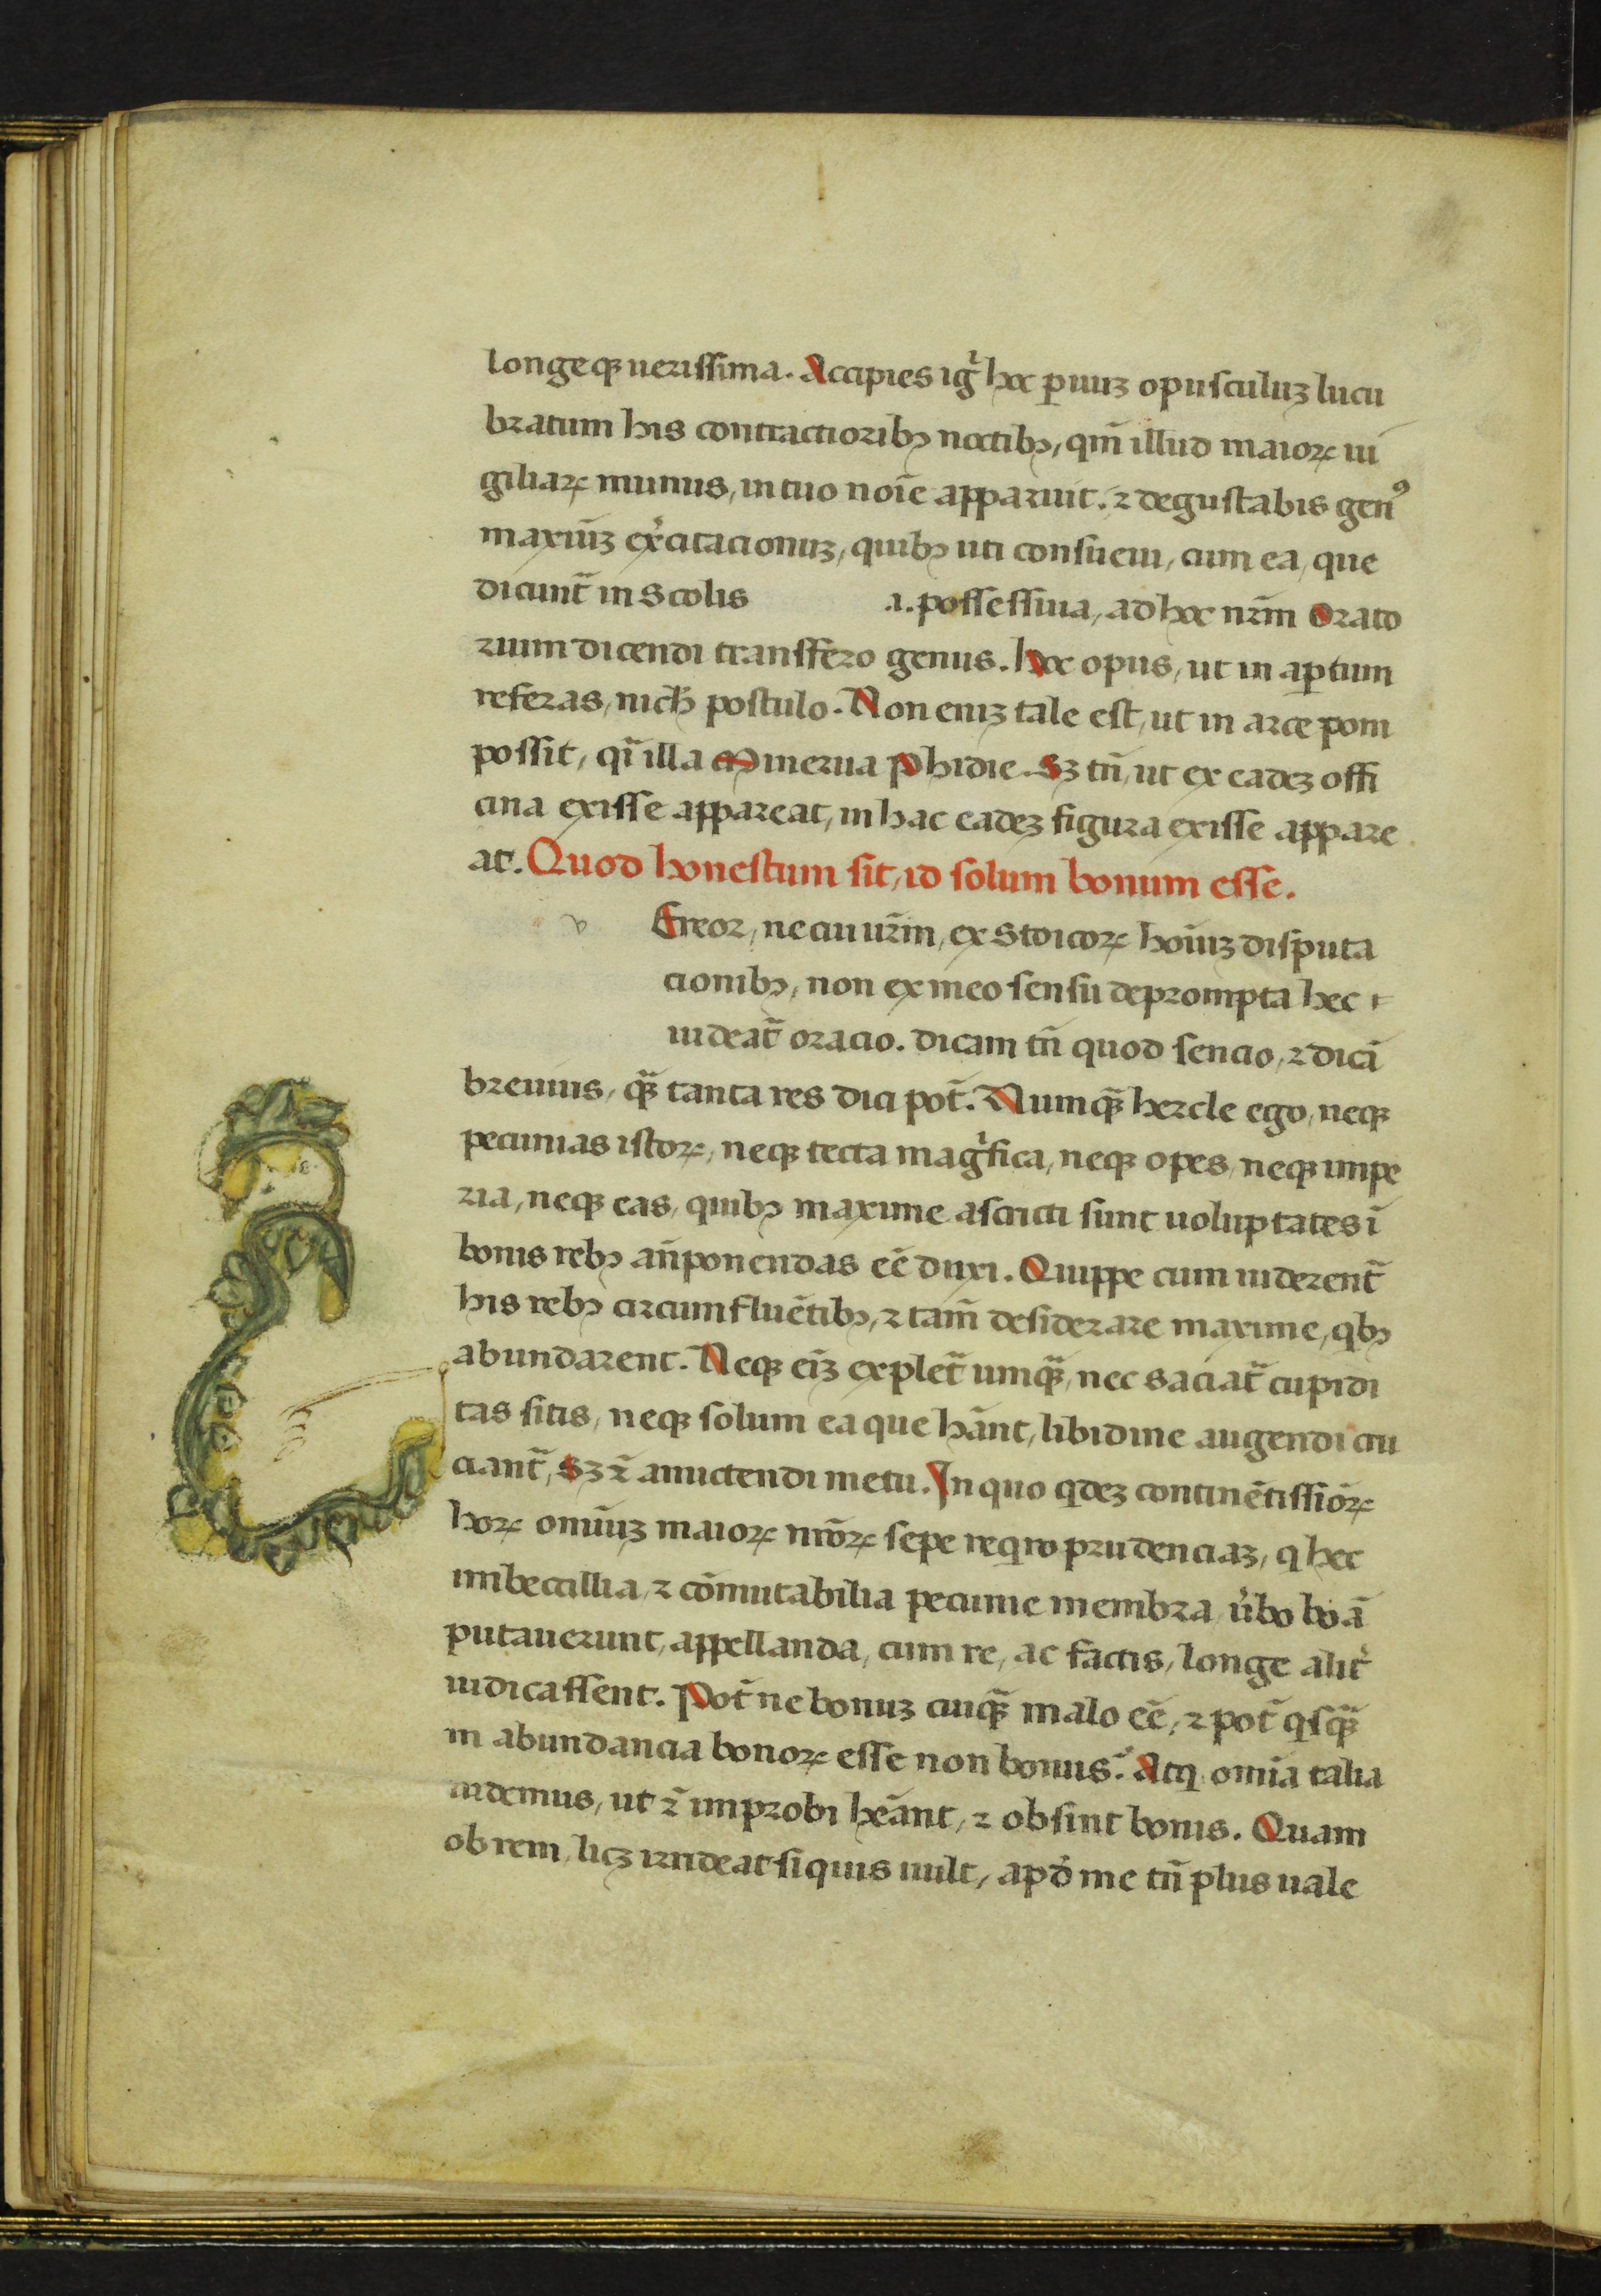 longeqꝫ uerissima. Accipies igͥ hoc ꝑuuꝫ opusculuꝫ lucu
bratum his contractioribꝫ noctibꝫ, qm̄ illud maioꝝ ui
giliaꝝ munus, in tuo noīe apparuit. ⁊ degustabis gen⁹
maxīuꝫ ex̓citacionuꝫ, quibꝫ uti consueui, cum ea, que
dicunt̄ in Scolis .i. possessiua, ad hoc nr̄m Orato
rium dicendi transffero genus. Hoc opus, ut in aꝑtum
referas, nich postulo. Non eniꝫ tale est, ut in arce poni
possit, qͣi illa Minerua Phidie. Sꝫ tn̄, ut ex eadeꝫ offi
cina exisse appareat, in hac eadeꝫ figura exisse appare
at. Quod honestum sit, id solum bonum esse.
v Ereor, ne cui ur̄m, ex Stoicoꝝ hoīuꝫ disputa
cionibꝫ, non ex meo sensu deprompta hec
uideat̄ oracio. Dicam tn̄ quod sencio, ⁊ dicā
breuius, qꝫ̄ tanta res dici pot̄. Numqꝫ̄ hercle ego, neqꝫ
pecunias istoꝝ, neqꝫ tecta magͥfica, neqꝫ opes, neqꝫ impe
ria, neqꝫ eas, quibꝫ maxime astricti sunt uoluptates ī
bonis rebꝫ an̄ponendas eē duxi. Quippe cum uiderent̄
his rebꝫ circumfluētibꝫ, ⁊ tam̄ desiderare maxime, qbꝫ
abundarent. Neqꝫ eīꝫ explet̄ umqꝫ̄, nec saciat̄ cupidi
tas sitis, neqꝫ solum ea que hānt, libidine augendi cru
ciant̄, Sꝫ ⁊̄ amictendi metu. In quo qdeꝫ continētissīoꝝ
hoꝝ omīuꝫ maioꝝ nr̄oꝝ sepe reqͥro prudenciaꝫ, q hec
imbecillia, ⁊ cōmutabilia pecunie membra, u̓bo boā
putauerunt, appellanda, cum re, ac factis, longe alit̓
iudicassent. Pot̄ ne bonuꝫ cuiqꝫ̄ malo eē, ⁊ pot̄ qsqꝫ̄
in abundancia bonoꝝ esse non bonus. Atqͥ omīa talia
uidemus, ut ⁊̄ improbi heānt, ⁊ obsint bonis. Quam
ob rem, licꝫ irrideat si quis uult, apd̓ me tn̄ plus uale